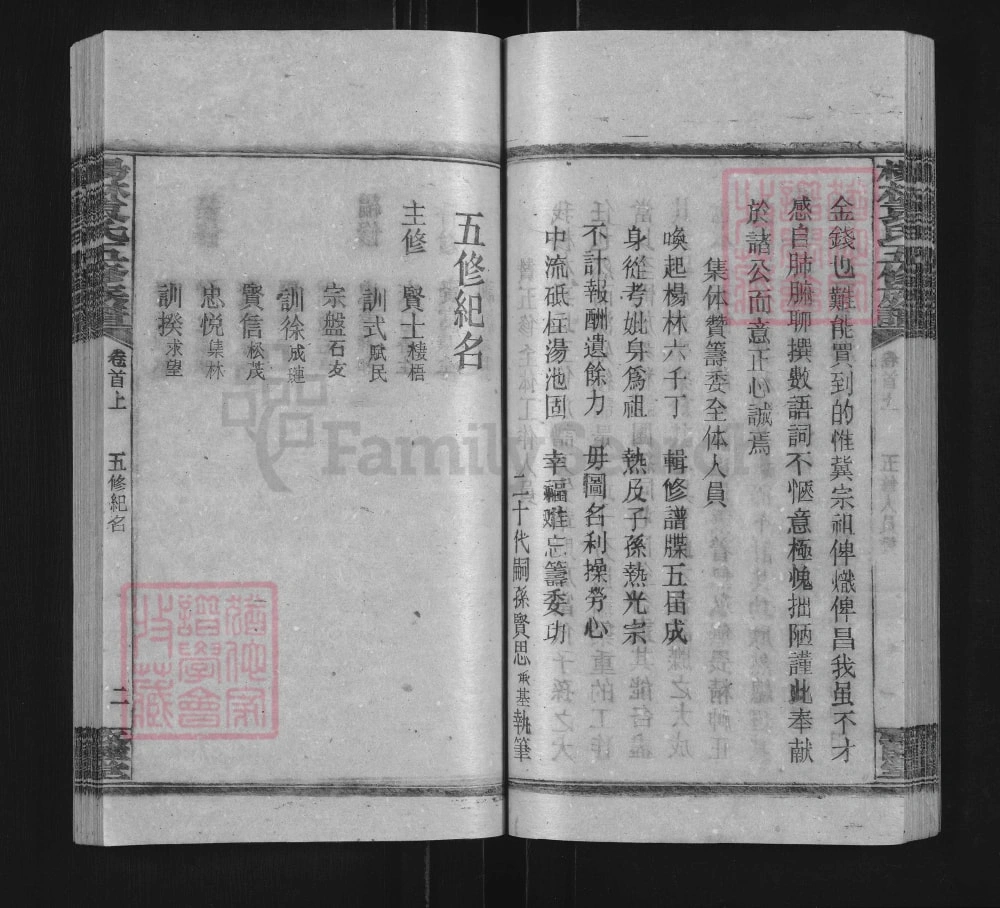 金錢也難能買到的惟冀宗祖俾熾俾昌我虽不才
感自肺腑聊撰數語詞不愜意極愧拙陋謹此奉献
於諸公而意正心誠焉
集体贊籌委全体人員
喚起楊林六千丁 輯修譜牒五届成
身從考妣身爲祖 熱及子孫熱光宗
不計報酬遺餘力 毋圖名利操勞心
中流砥柱湯池固 幸福难忘籌委功
二十代嗣孫賢思 承基執筆
五修紀名
主修 賢士 棲梧
訓式 賦民
宗盤 石友
訓徐 成璉
賢信 松茂
忠悦 集林
訓揆 求望
卷首上
五修紀名
二
FamilySearch